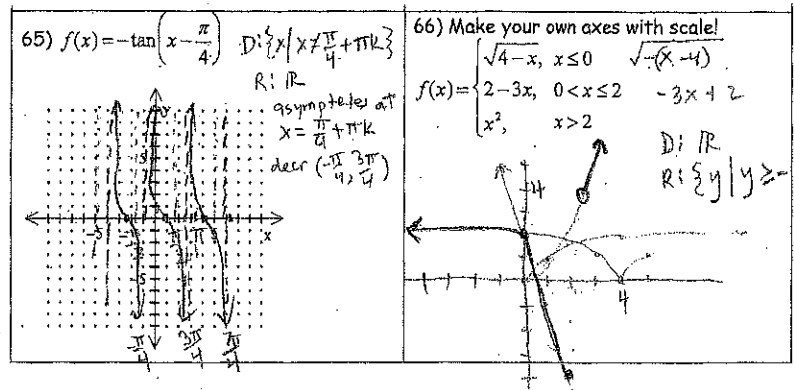 65) f(x) = -tan(x - π/4)
D:{x | x ≠ π/4 + πk}
R: ℝ
asymptotes at
x = π/4 + πk
decr (-π/4, 3π/4)
y
x
-π/4
3π/4
7π/4
66) Make your own axes with scale!
f(x) = { √(4-x), x ≤ 0
2-3x, 0 < x ≤ 2
x², x > 2
√(-(x-4))
-3x + 2
D: ℝ
R: {y | y ≥ -
4
4